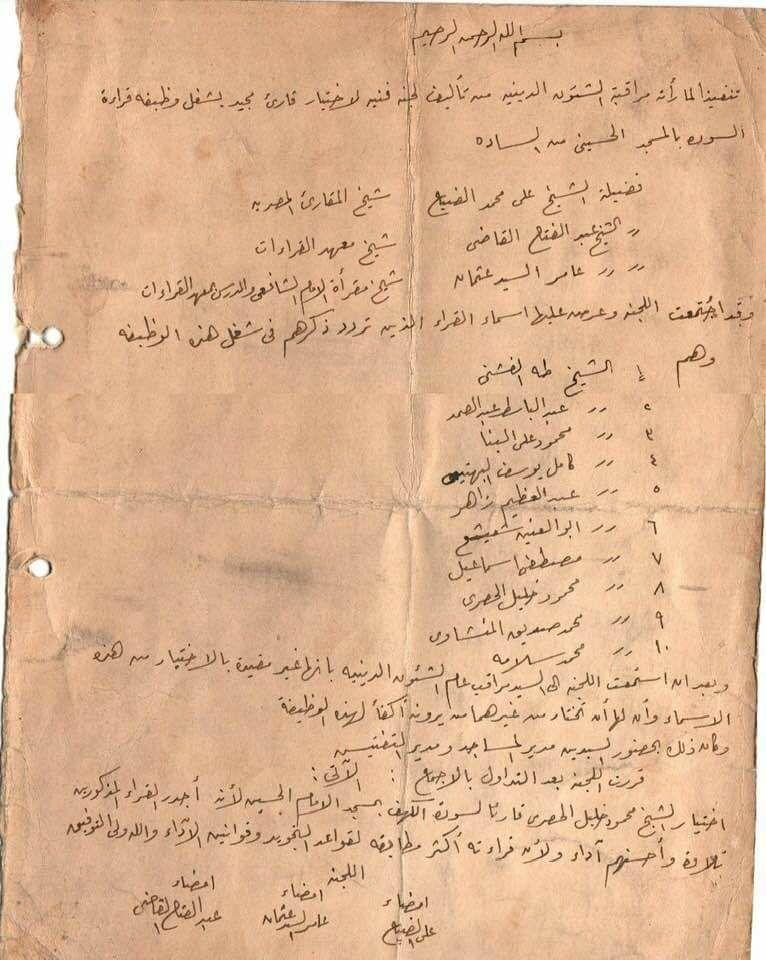 بسم الله الرحمن الرحيم
تنفيذا لما رأته مراقبة الشئون الدينيه من تأليف لجنه فنيه لاختيار قارئ مجيد يشغل وظيفه قراءة
السوره بالمسجد الحسينى من الساده
فضيلة الشيخ على محمد الضباع شيخ المقارئ المصريه
〃 الشيخ عبد الفتاح القاضى شيخ معهد القراءات
〃 〃 عامر السيد عثمان شيخ مقرأة الامام الشافعى والمدرس بمعهد القراءات
وقد اجتمعت اللجنه وعرض عليها اسماء القراء الذين تردد ذكرهم فى شغل هذه الوظيفه
وهم
١ الشيخ طه الفشنى
٢ 〃 عبد الباسط عبد الصمد
٣ 〃 محمود على البنا
٤ 〃 كامل يوسف البهتيمى
٥ 〃 عبد العظيم زاهر
٦ 〃 ابو العنين شعيشع
٧ 〃 مصطفى اسماعيل
٨ 〃 محمود خليل الحصرى
٩ 〃 محمد صديق المنشاوى
١٠ 〃 محمد سلامه
وبعد ان استمعت اللجنه الى السيد مراقب عام الشئون الدينيه بانها غير مقيدة بالاختيار من هذه
الاسماء وأن لها أن تختار من غيرهم من يرونه أكفأ لهذه الوظيفة
وكان ذلك بحضور السيدين مدير المساجد ومدير التفتيش
قررت اللجنه بعد التداول بالاجماع : الآتى :
اختيار الشيخ محمود خليل الحصرى قارئا لسورة الكهف بمسجد الامام الحسين لأنه أجدر القراء المذكورين
تلاوة وأحسنهم آداء ولأن قراءته أكثر مطابقه لقواعد التجويد وقوانين الآداء والله ولى التوفيق
اللجنه
امضاء امضاء امضاء
على الضباع عامر السيد عثمان عبد الفتاح القاضى